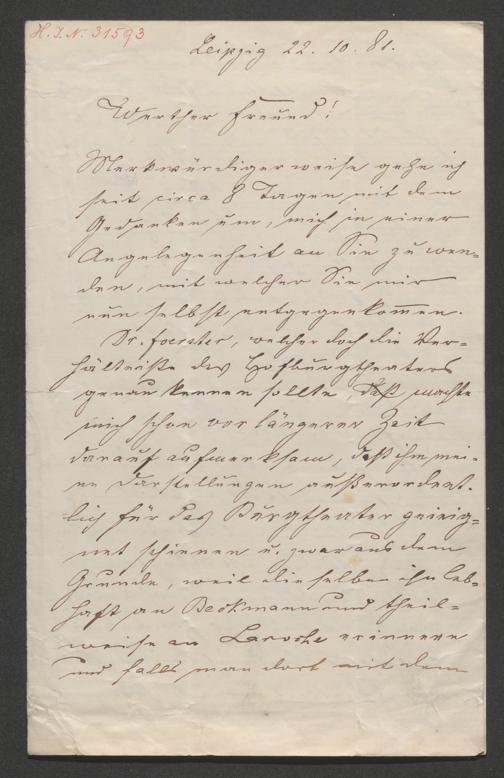 H. I. N. 31593
Leipzig 22. 10. 81.
Werther Freund!
Merkwürdigerweise gehe ich
seit circa 8 Tagen mit dem
Gedanken um, mich in einer
Angelegenheit an Sie zu wen-
den, mit welcher Sie mir
nun selbst entgegenkom̅en.
Dr. Foerster, welcher doch die Ver-
hältniße des Hofburgtheaters
genau kennen sollte, machte
mich schon vor längerer Zeit
darauf aufmerksam, daß ihm mei-
ne Darstellungen außerordent-
lich für das Burgtheater geeig-
net schienen u. zwar aus dem
Grunde, weil dieselben ihn leb-
haft an Beckmann und theil-
weise an Laroche erinnern
und falls man dort mit dem